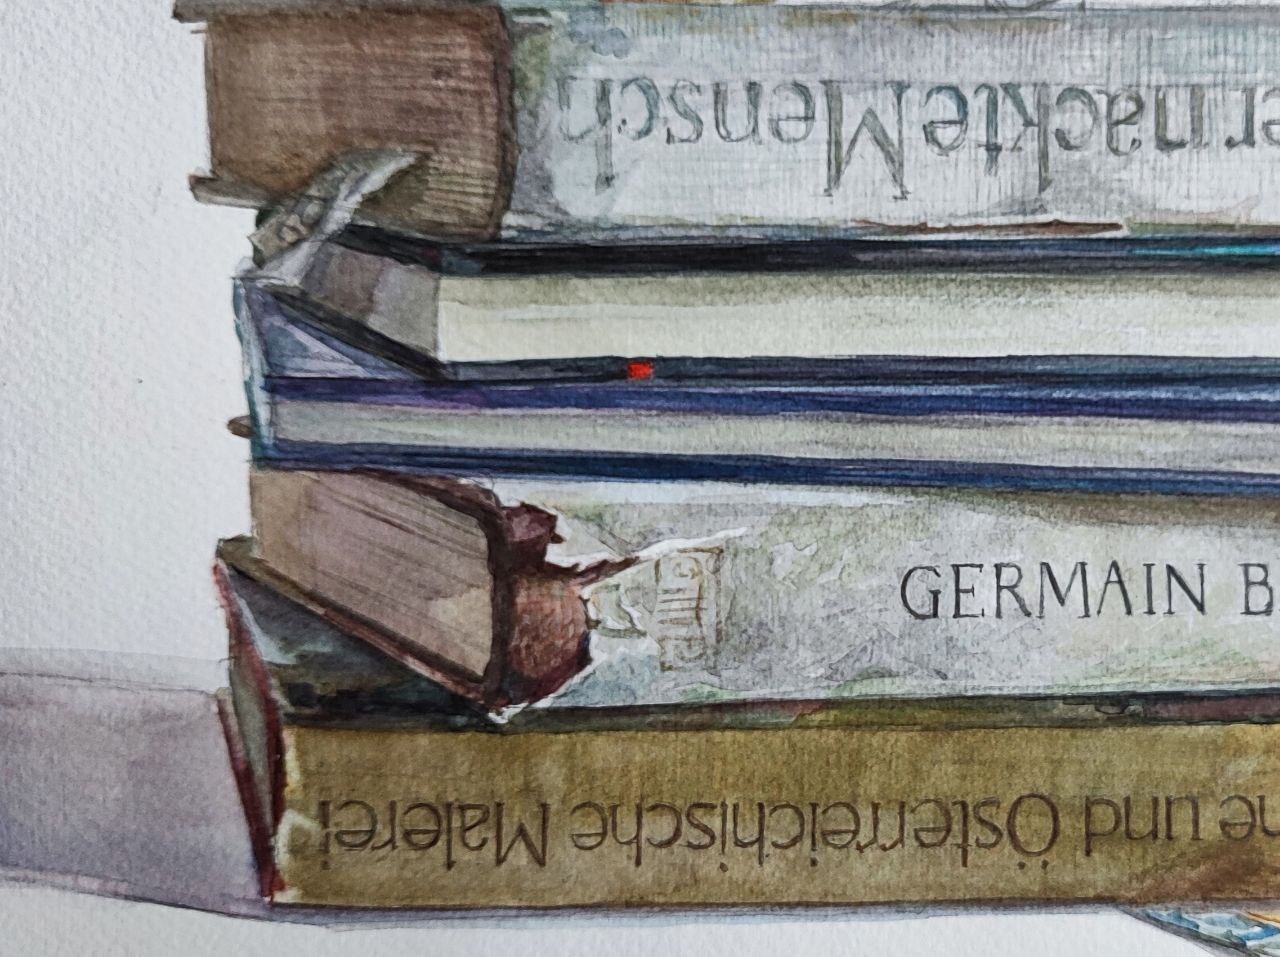 er nackte Mensch
GERMAIN B
he und Österreichische Malerei